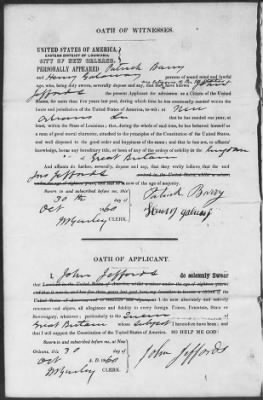 OATH OF WITNESSES.
UNITED STATES OF AMERICA,
EASTERN DISTRICT OF LOUISIANA,
CITY OF NEW ORLEANS.
PERSONALLY APPEARED Patrick Barry
and Henry persons of sound mind and lawful
age, who, being duly sworn, severally depose and say, that they have known John
Jeffords the present Applicant for admission as a Citizen of the United
States, for more than five years last past, during which time he has continually resided within the
limits and jurisdiction of the United States of America, to wit: at New
Orleans La that he has resided one year, at
least, within the State of Louisiana; that, during the whole of such time, he has behaved himself as
a man of good moral character, attached to the principles of the Constitution of the United States,
and well disposed to the good order and happiness of the same; and that he is not, to
knowledge, being any hereditary title, or been of any of the orders of nobility in the kingdom
of Great Britain
And affiants do further, severally, depose and say, that they verily believe that the said
Jno Jeffords
is now of the age of majority.
Sworn to and subscribed before me, this
30th day of
Oct 60
CLERK.
Patrick Barry
OATH OF APPLICANT.
I, John Jeffords do solemnly Swear
that
I do now absolutely and entirely
renounce and abjure, all allegiance and fidelity to every foreign Prince, Potentate, State or
Sovereignty, whatever; particularly to the Queen of
Great Britain whose Subject I heretofore have been; and
that I will support the Constitution of the United States. SO HELP ME GOD!
Sworn to and subscribed before me, at New
Orleans, this 30 day of
Oct A. D. 1860
CLERK.
John Jeffords